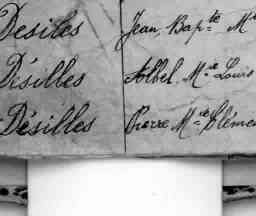 Desiles Jean Bapte Mie
Désilles Abel Mie Louis
Désilles Pierre Mie Cléme